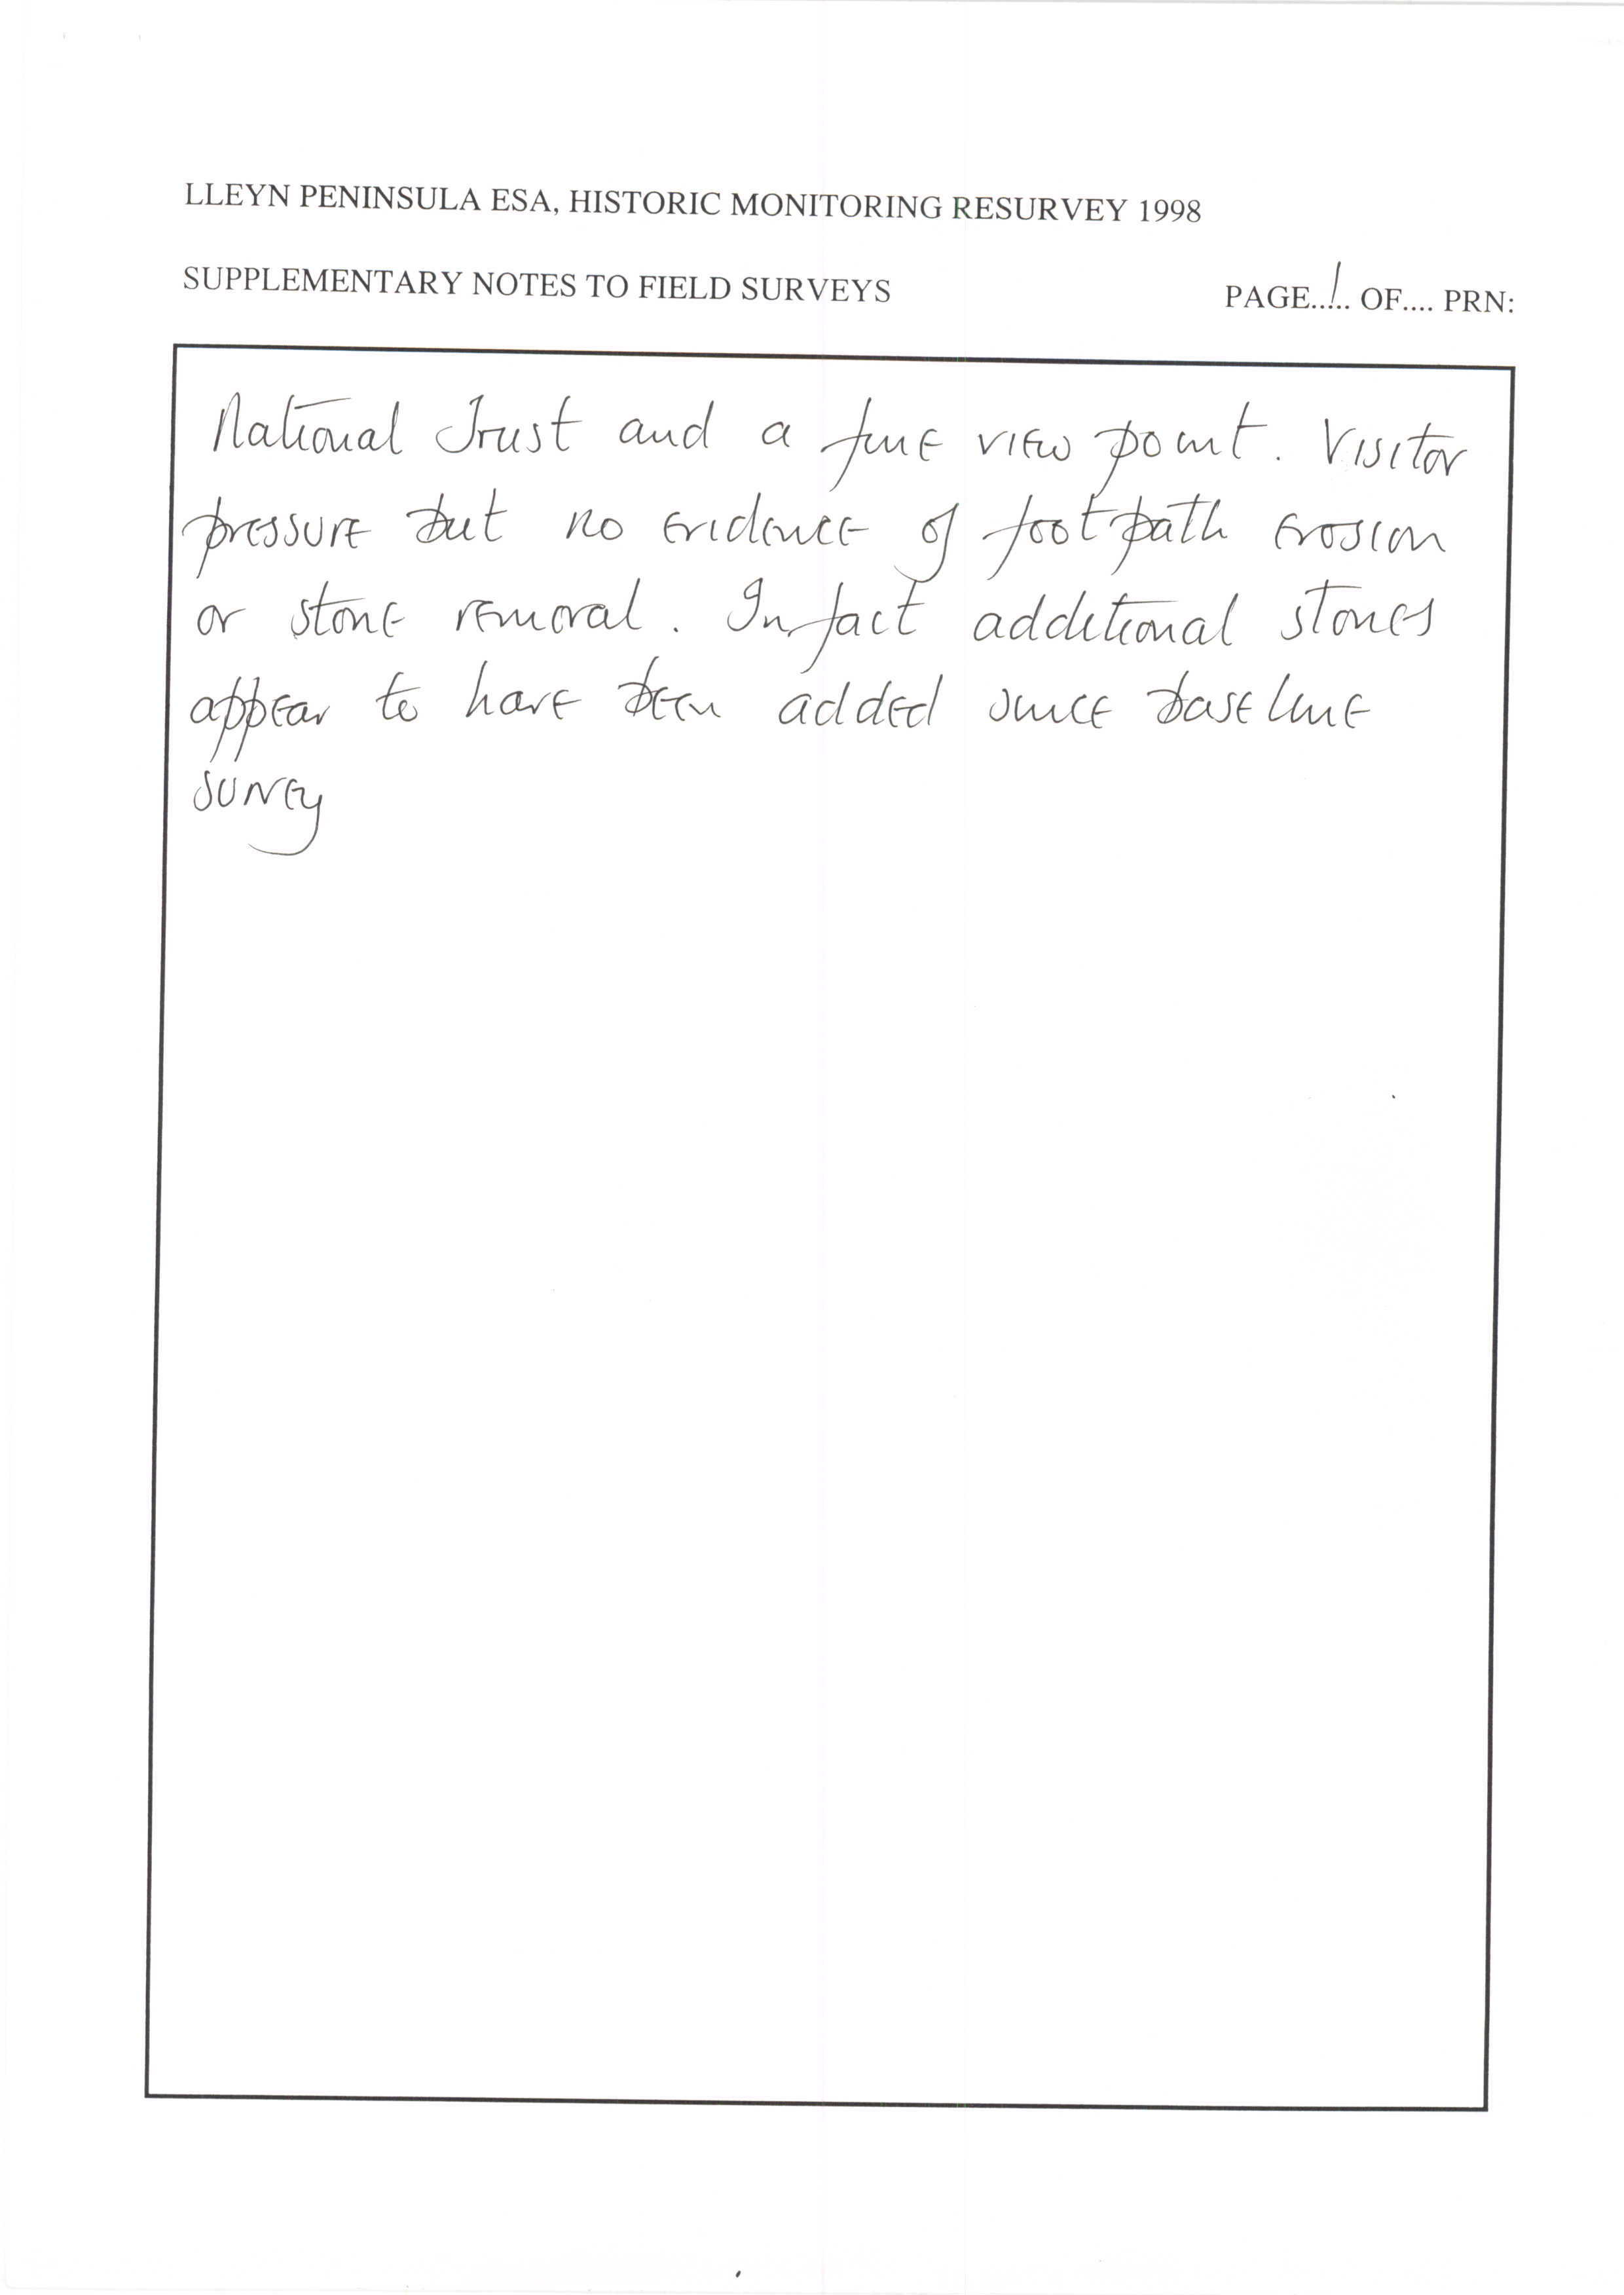 LLEYN PENINSULA ESA, HISTORIC MONITORING RESURVEY 1998
SUPPLEMENTARY NOTES TO FIELD SURVEYS PAGE..1.. OF.... PRN:
National Trust and a fine view point. Visitor
pressure but no evidence of footpath erosion
or stone removal. In fact additional stones
appear to have been added since baseline
survey